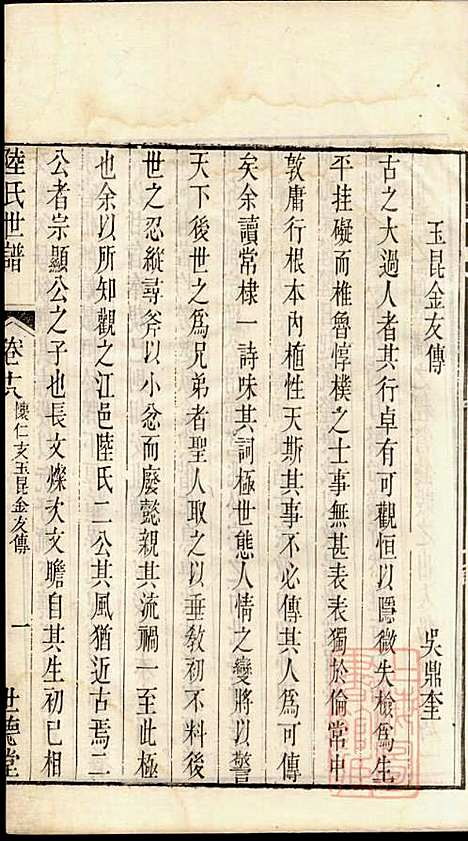 玉昆金友傳
吳鼎奎
古之大過人者其行卓有可觀恒以隱微失檢為生
平挂礙而椎魯惇樸之士事無甚表表獨於倫常中
敦庸行根本內植性天斯其事不必傳其人為可傳
矣余讀常棣一詩味其詞極世態人情之變將以警
天下後世之為兄弟者聖人取之以垂敎初不料後
世之忍縱尋斧以小忿而廢懿親其流禍一至此極
也余以所知觀之江邑陸氏二公其風猶近古焉二
公者宗顯公之子也長文燦次文贍自其生初已相
陸氏世譜
卷十八
懷仁支玉昆金友傳
一
世德堂